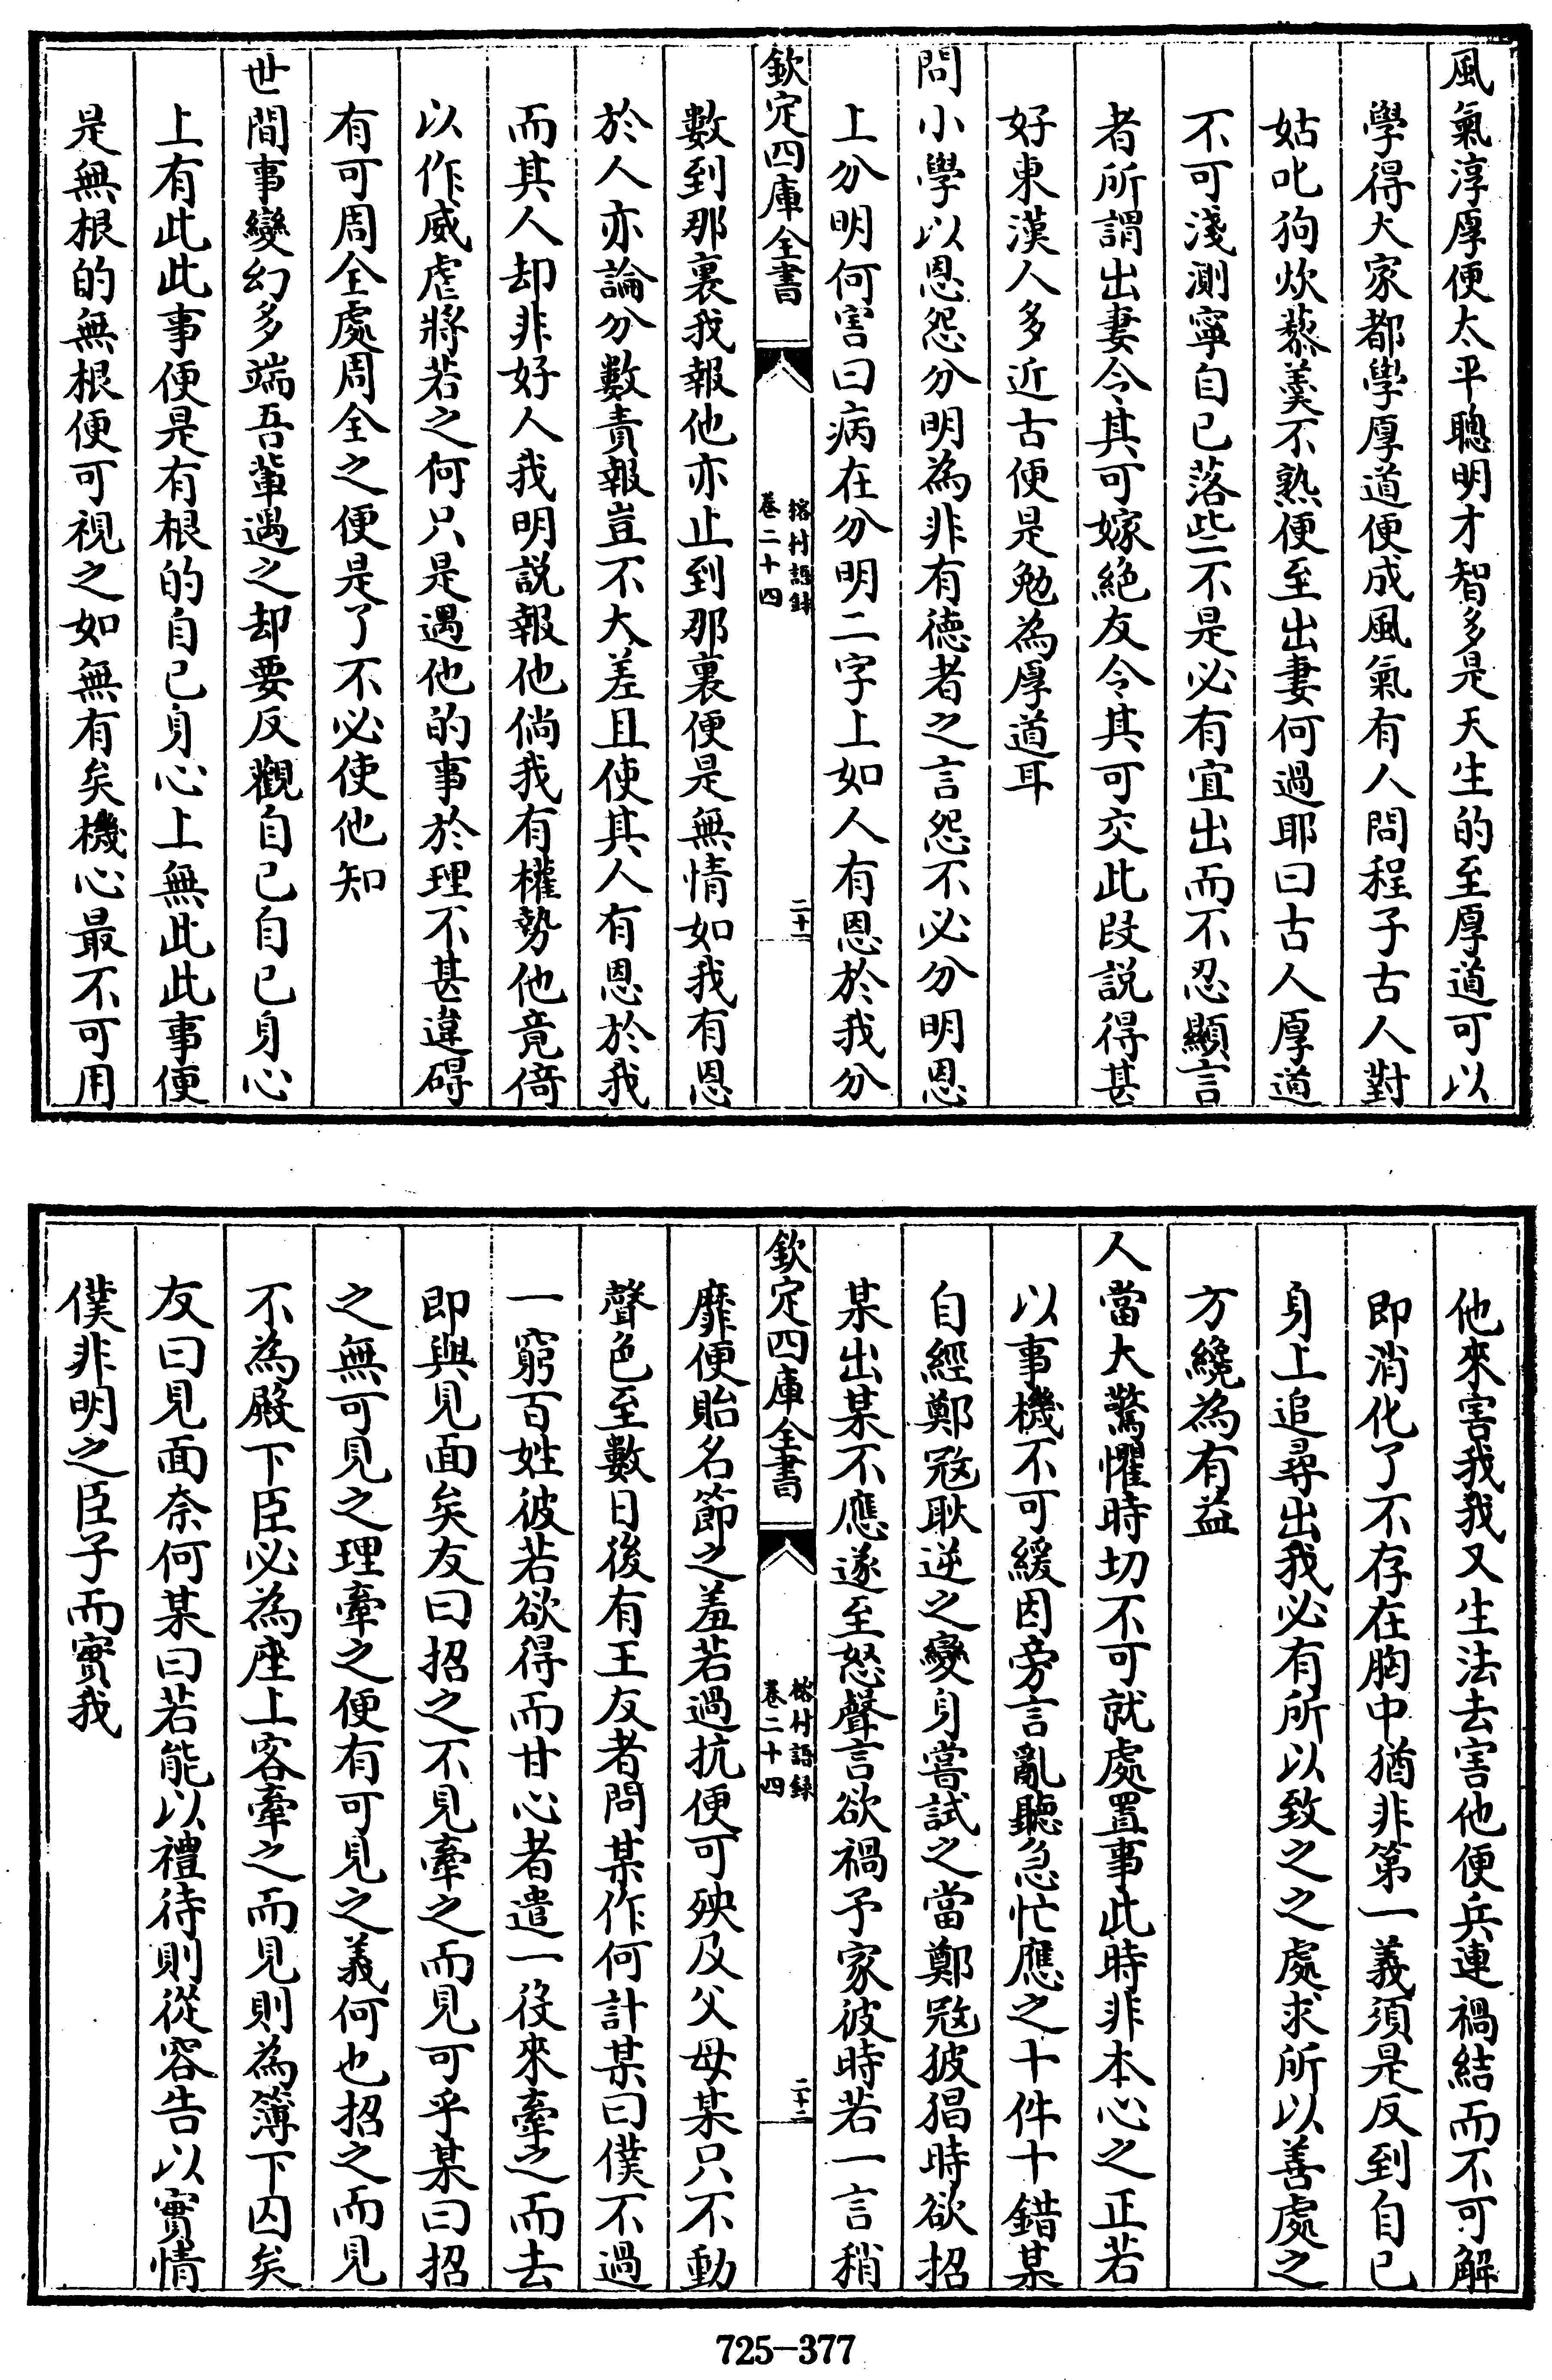 風氣淳厚便太平聰明才智多是天生的至厚道可以
學得大家都學厚道便成風氣有人問程子古人對
姑叱狗炊藜羹不熟便至出妻何過耶曰古人厚道
不可淺測寧自已落些不是必有宜出而不忍顯言
者所謂出妻令其可嫁絶友令其可交此段説得甚
好東漢人多近古便是勉為厚道耳
問小學以恩怨分明為非有德者之言怨不必分明恩
上分明何害曰病在分明二字上如人有恩於我分
欽定四庫全書
榕村語録
卷二十四
二十一
數到那裏我報他亦止到那裏便是無情如我有恩
於人亦論分數責報豈不大差且使其人有恩於我
而其人却非好人我明説報他倘我有權勢他竟倚
以作威虐將若之何只是遇他的事於理不甚違碍
有可周全處周全之便是了不必使他知
世間事變幻多端吾輩遇之却要反觀自已自已身心
上有此此事便是有根的自已身心上無此此事便
是無根的無根便可視之如無有矣機心最不可用
他來害我我又生法去害他便兵連禍結而不可解
即消化了不存在胸中猶非第一義須是反到自已
身上追尋出我必有所以致之之處求所以善處之
方纔為有益
人當大驚懼時切不可就處置事此時非本心之正若
以事機不可緩因旁言亂聽急忙應之十件十錯某
自經鄭冦耿逆之變身嘗試之當鄭冦披猖時欲招
某出某不應遂至怒聲言欲禍予家彼時若一言稍
欽定四庫全書
榕村語録
卷二十四
二十二
靡便貽名節之羞若過抗便可殃及父母某只不動
聲色至數日後有王友者問某作何計某曰僕不過
一窮百姓彼若欲得而甘心者遣一役來牽之而去
即與見面矣友曰招之不見牽之而見可乎某曰招
之無可見之理牽之便有可見之義何也招之而見
不為殿下臣必為座上客牽之而見則為簿下囚矣
友曰見面奈何某曰若能以禮待則從容告以實情
僕非明之臣子而實我
725—377